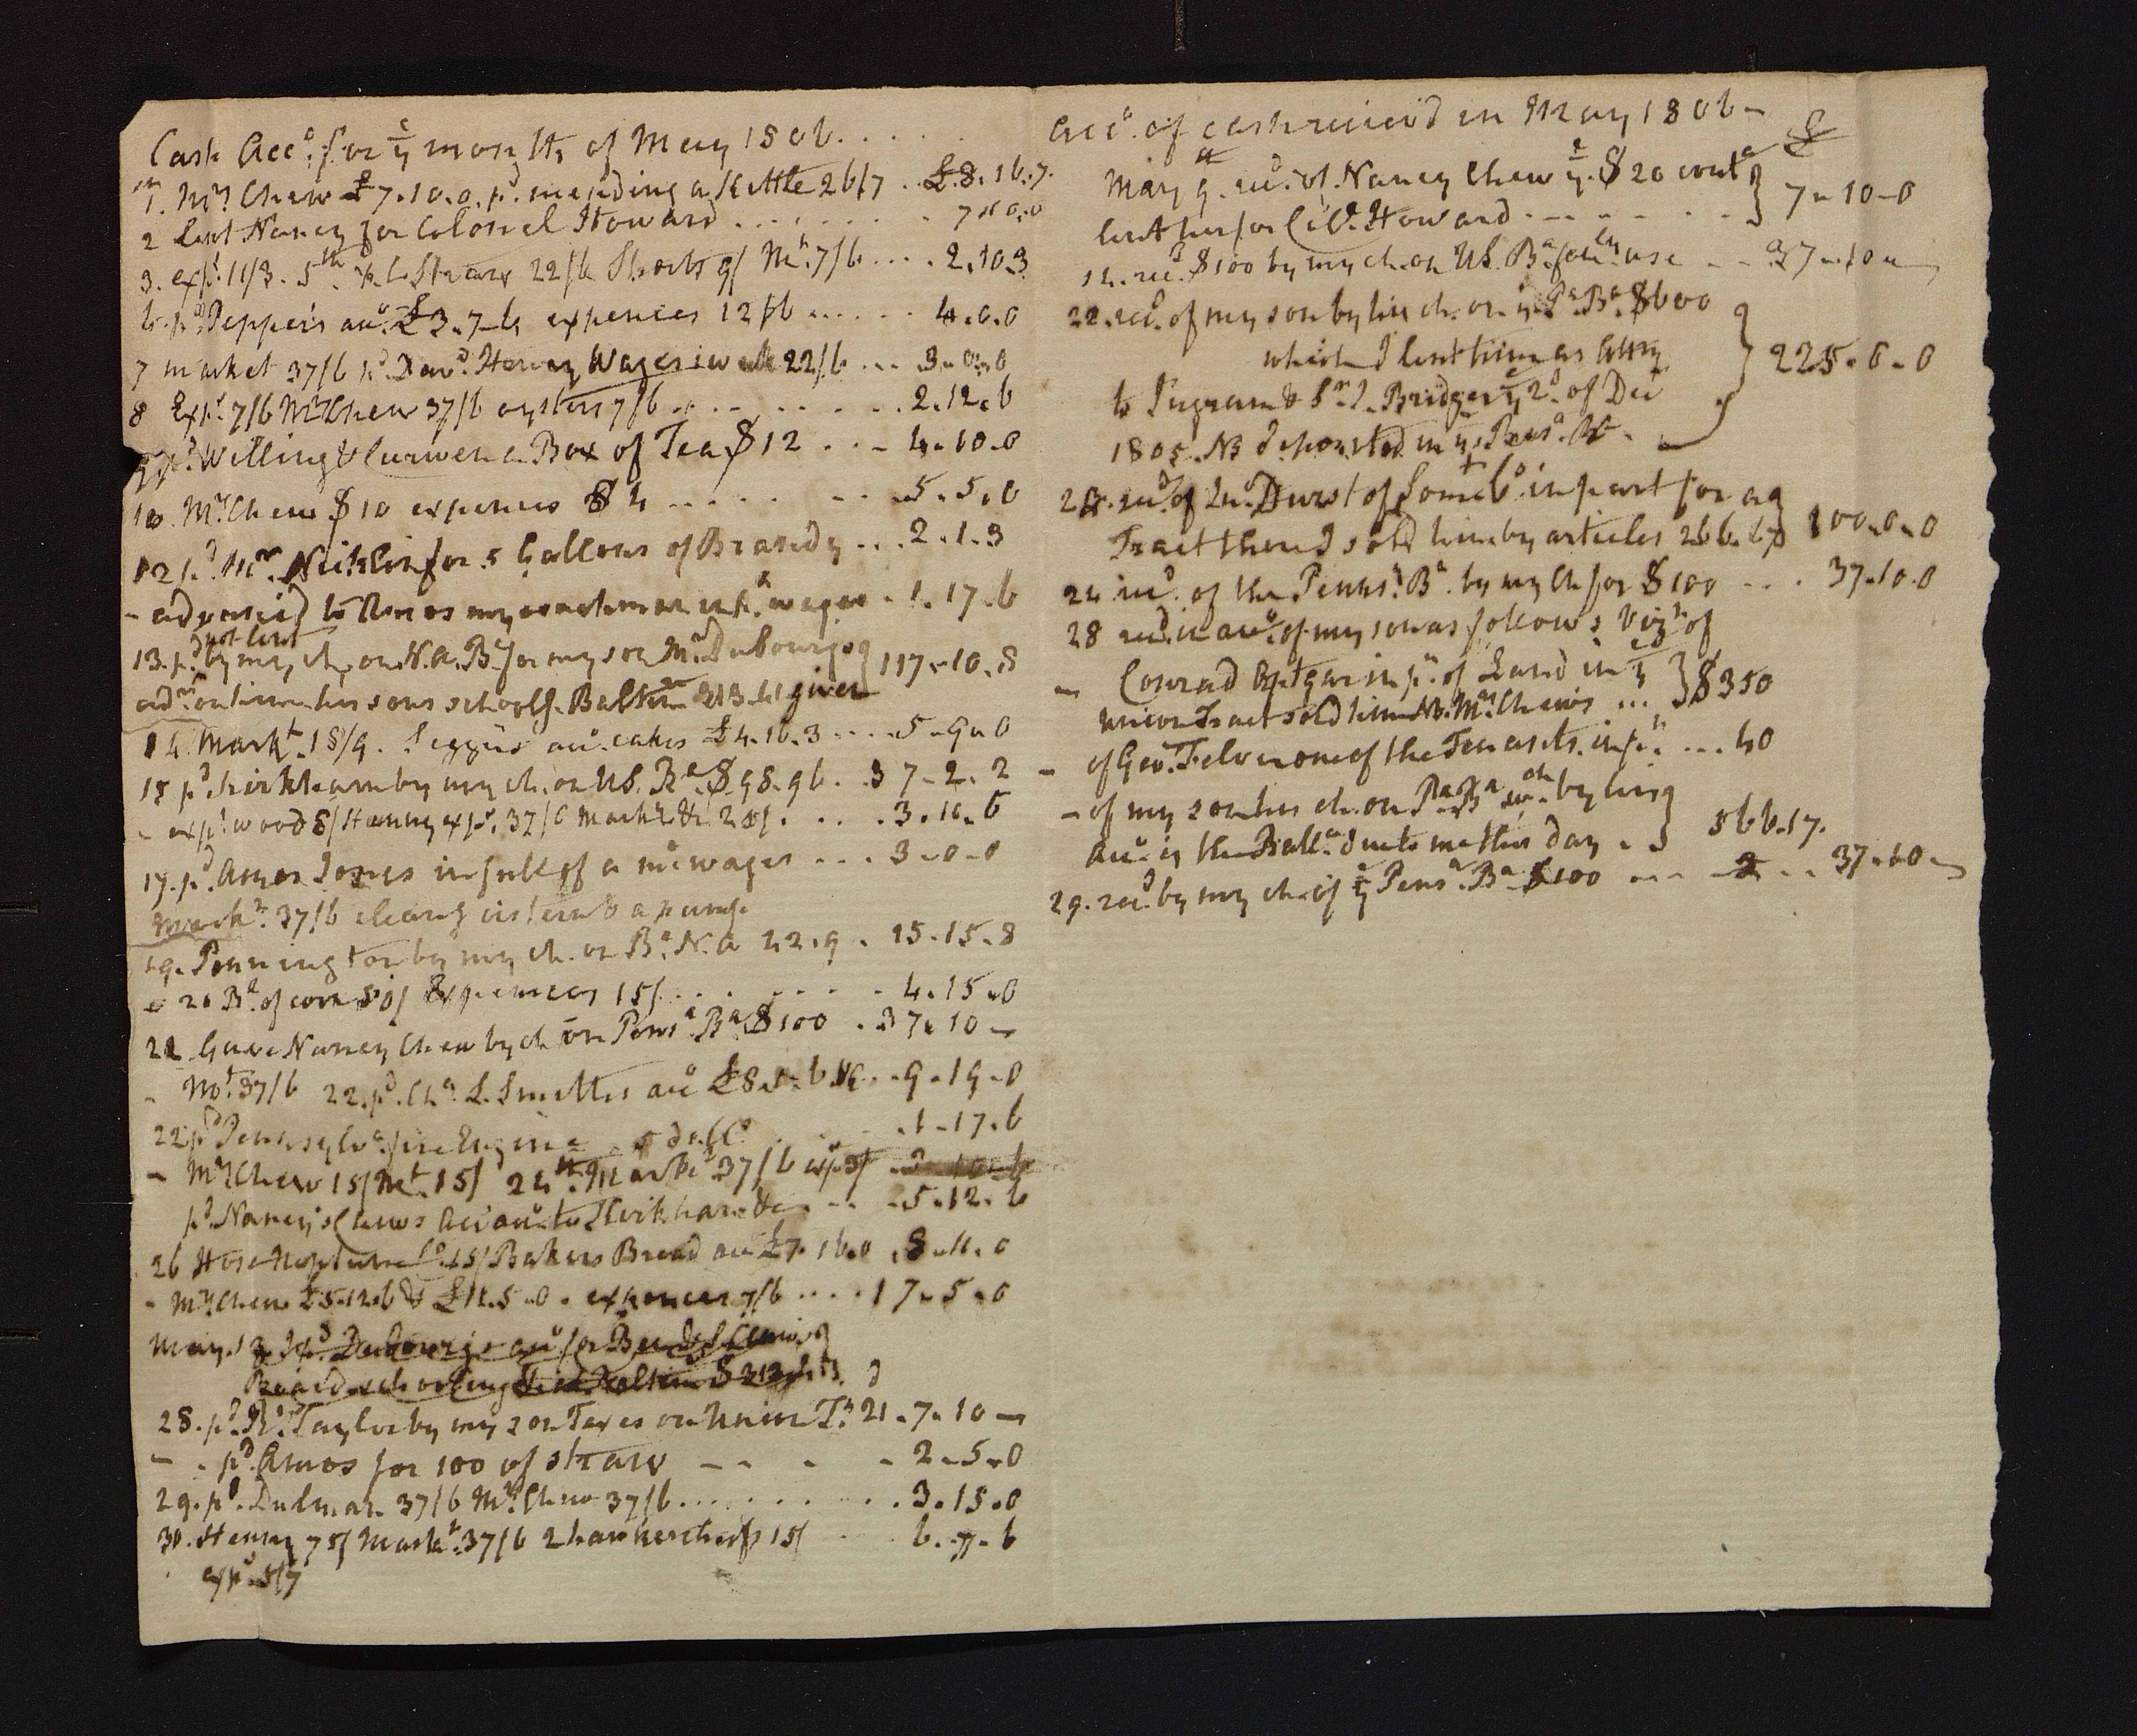 Cash Acco. for ye month of May 1806. . . .
1. Mrs Chew £7.10.0. pd. mending a Kettle 26/7 . . £8.16.7.
2 lent Nancy for Colonel Howard . . . . . . . 7.10.0
3. exps. 11/3. 5th. Straw 22/6 Shorts 9/ Mt. 7/6 . . . . 2.10.3
6. pd. Pepper's acco. £3.7.6 expences 12/6 . . . . . 4.0.0
7 market 37/6 pd. Davd. Harvey Wages 22/6 . . . 3.0.0
8 Exps. 7/6 Mrs Chew 37/6 oysters 7/6 . . . . . . . 2.12.6
9 pd. Willing & Curwen a Box of Tea $12 . . . 4.10.0
10. Mrs Chew $10 expences $4 . . . . . . 5.5.0
12 pd. Mr. Nicklin for 5 Gallons of Brandy . . . 2.1.3
- advanced to Amos my coachman wages . 1.17.6
not lent
13. pd. by my ch. on N.A. Ba. for my son Mr. Dubourgs
advd. on him his sons schoolg. Baltime. 313.41 given 117.10.8
14. Markt. 18/9. acco. cakes £4.16.3 . . . . 5.9.0
15 pd. Kirkham by my ch. on US. Ba. $98.96 . . 37.2.2
- exps. wood 8/ Henry exps. 37/6 Markt. &c . . . . 3.16.6
17. pd. Amos Jones in full of a mo. wages . . . 3.0.0
Markt. 37/6 cleang cistern & a pump
19. Pennington by my ch. on Ba. N.A 42.9 . 15.15.8
20 Bs. of corn 80/ Expences 15/ . . . . . . . 4.15.0
21 Gave Nancy Chew by ch on Pensa. Ba. $100 . 37.10 -
- Mt. 37/6 22. pd. Chs. L. Smiths acco £8.1.6 . . 9.19.0
22 pd Pennsylva. fire Engine 5 dolls . . . . 1.17.6
- Mrs Chew 15/ Mt. 15/ 24th. Market 37/6 exps. 3/ 3.10.6
pd. Nancy Chews acco. to Kirkham &c . . . 5.12.6
26 Hose Neptune Co. 15/ Bakers Bread acco £7.16.0 . 8.11.0
- Mrs Chew £5.12.6 & £11.5.0 . expences 7/6 . . . . 17.5.0
May. 13 pd. Dubourgs acco for Ben
Board schooling Baltim $313
28. pd. Taylor by my son Taxes on Union Tt. 21.7.10 -
- - pd. Amos for 100 of straw - - - - 2.5.0
29. pd. Dulman 37/6 Mrs. Chew 37/6 . . . . . . . . 3.15.0
30. Henry 75/ Markt. 37/6 2 hankerchiefs 15/ . 6.7.6
exps. 5/7
Acco. of cash receiv'd in May 1806 -
£
May 9. recd. of Nancy Chew ye. $20
lent her for Col. Howard . - - - . . - 7 - 10 - 0
14. recd. $100 by my ch. on US. Ba. for use - - 37 - 10 -
22. recd. of my son by his ch. on ye. Pa. Ba. $600
which I lent him as Atty
to Ingram & Bridger ye 2d. of Dec
1805. NB deposited in ye. Pensa. Ba. - 225.0.0
24. recd. of Durst of Somt. Co. in part for a
Tract there I sold him by articles 266.67 100.0.0
24 recd. of the Pennsa. Ba. by my ch for $100 - . . 37.10.0
28 recd. in acco. of my son as follows Vizt. of
- Conrad in pt. of Land in ye
Union Tract sold him NB. Mrs. Chews . . . $350
- of Geo. Felver one of the Tenants. in pt. . . . 40
- of my son his ch. on Pa. Ba. by his
acco. is the Balla. due to me this day . . 566.17.
29. recd. by my ch. of ye Pensa. Ba. $100 - - - . . . 37.10 -